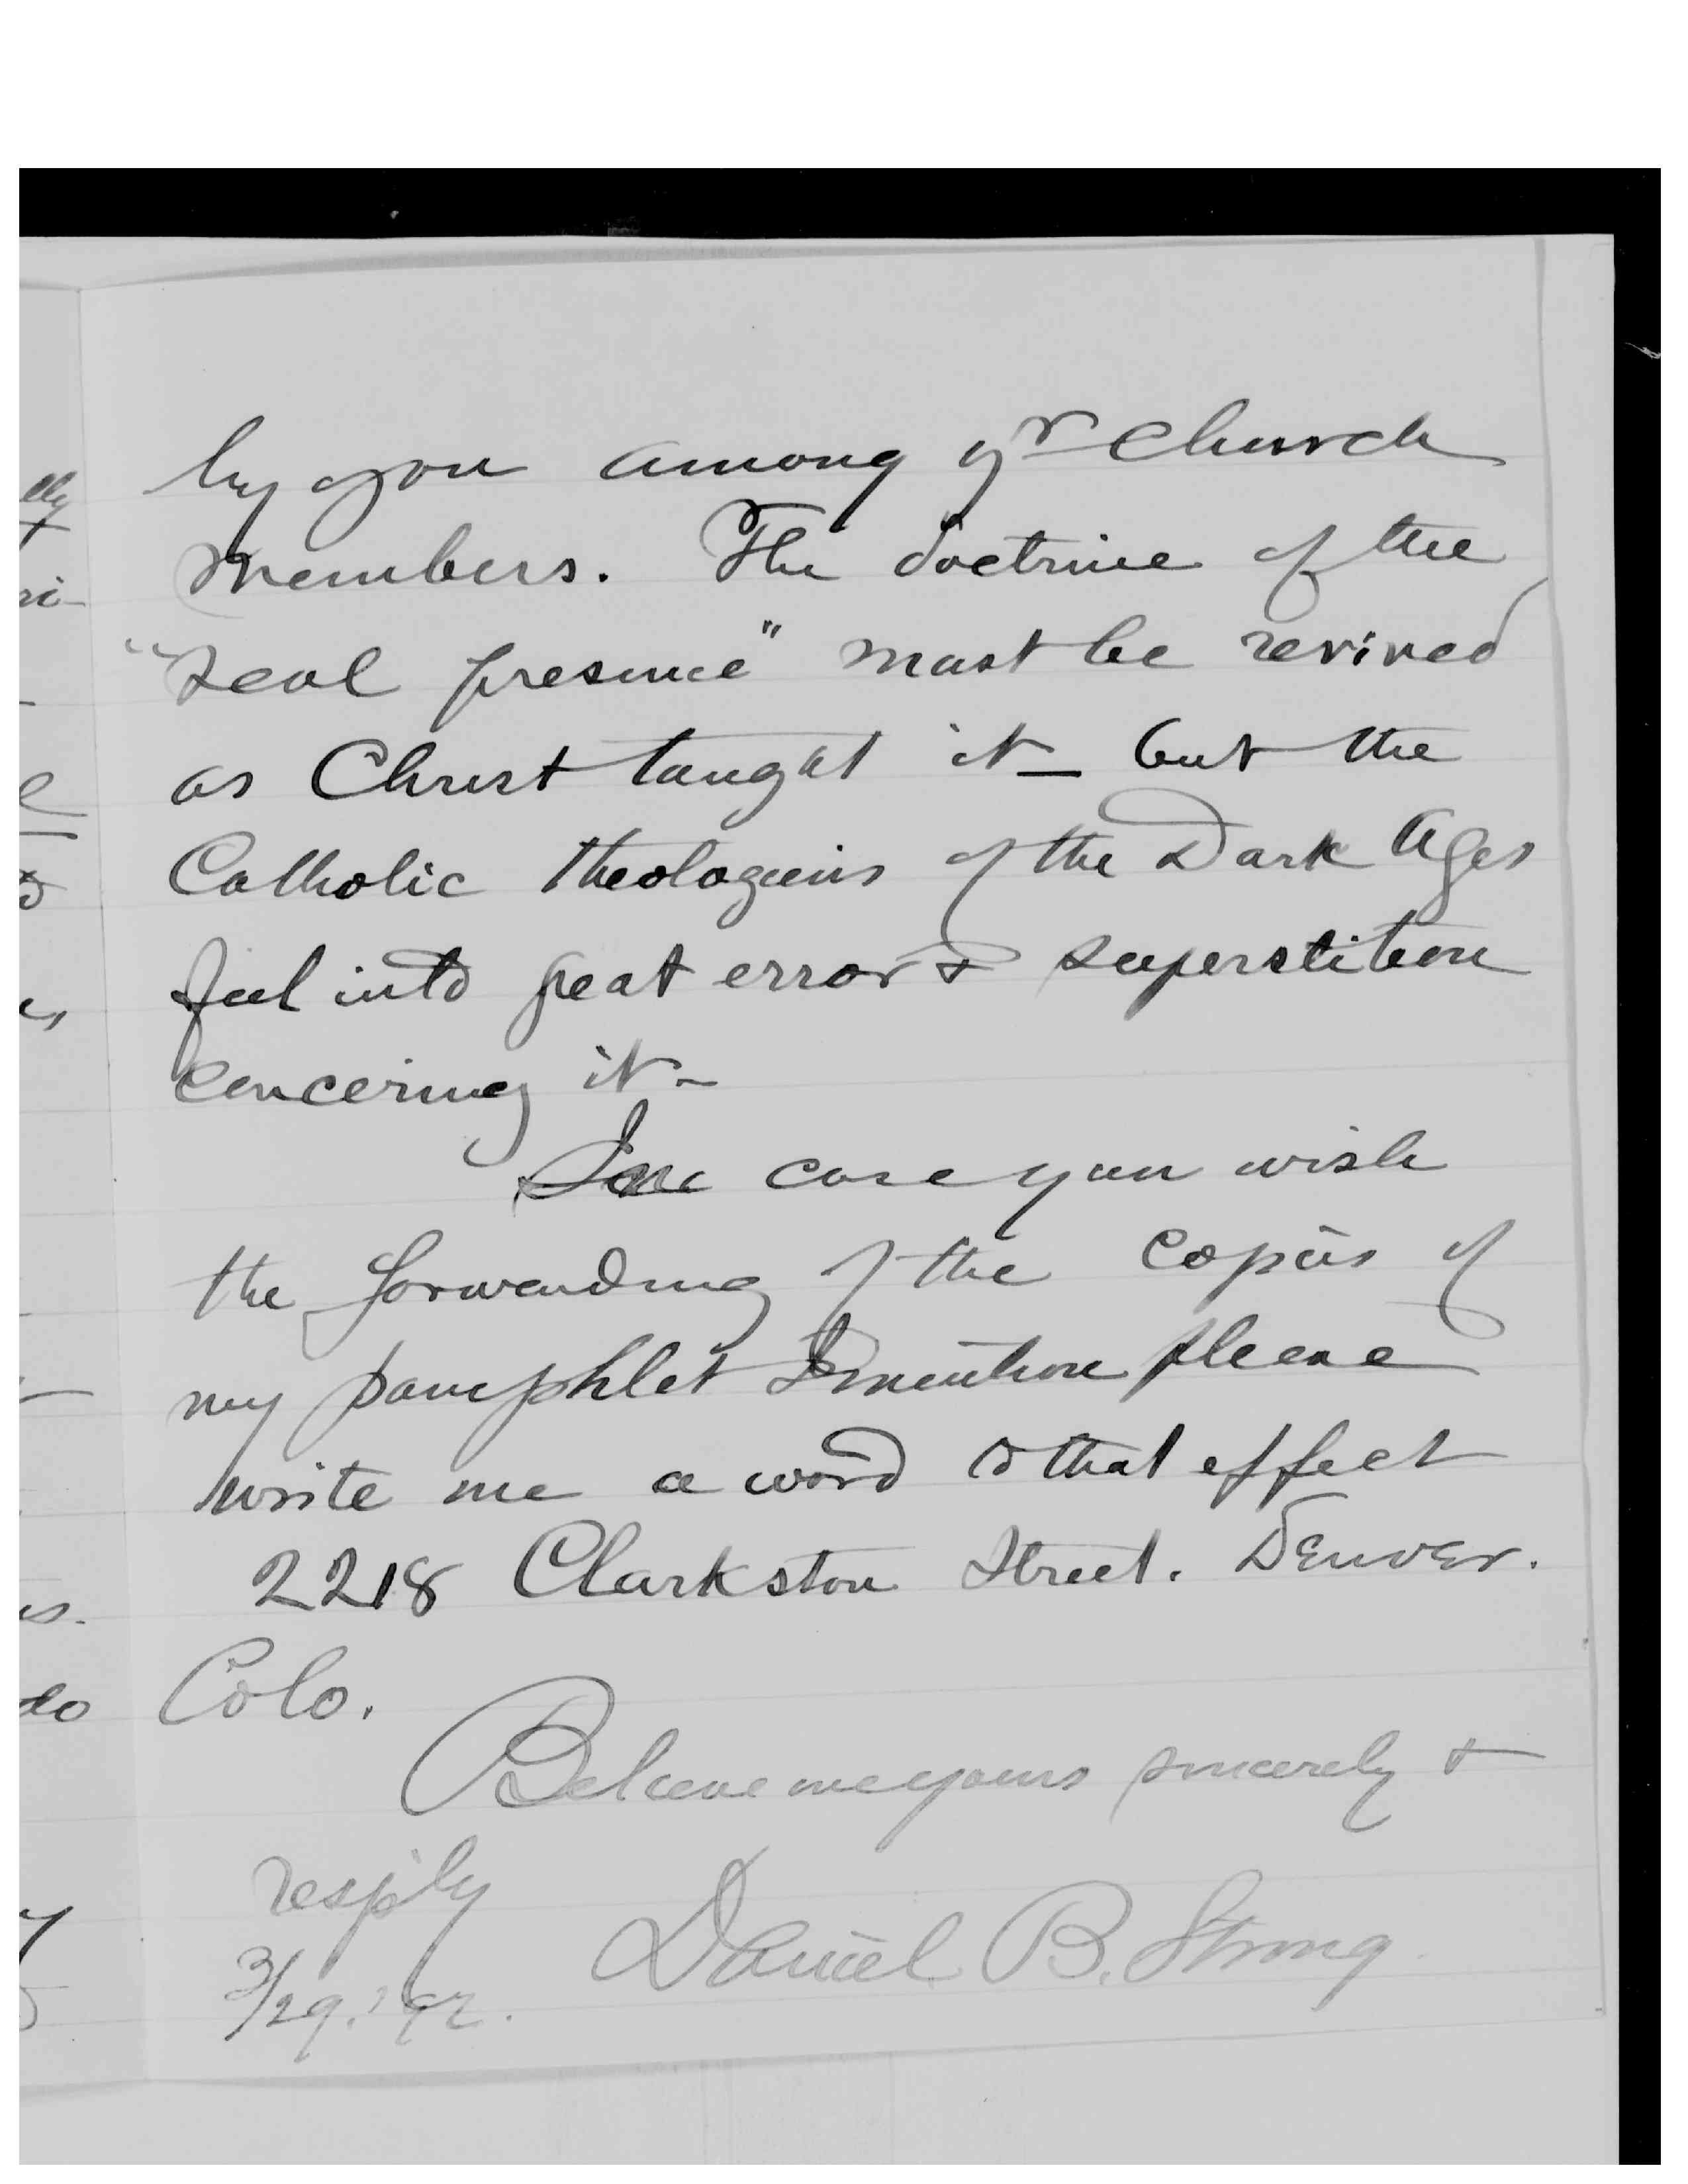 by you among yr church
members. The doctrine of the
"real presence" must be revived
as Christ taught it - but the
Catholic theologians of the Dark Ages
feel into great error & superstition
concering it -
In case you wish
the forwarding of the copies of
my pamphlet I mention please
write me a word to that effect
2218 Clarkston Street. Denver.
Colo.
Believe me yours sincerely &
resply
Daniel B. Strong
3/29. '92.